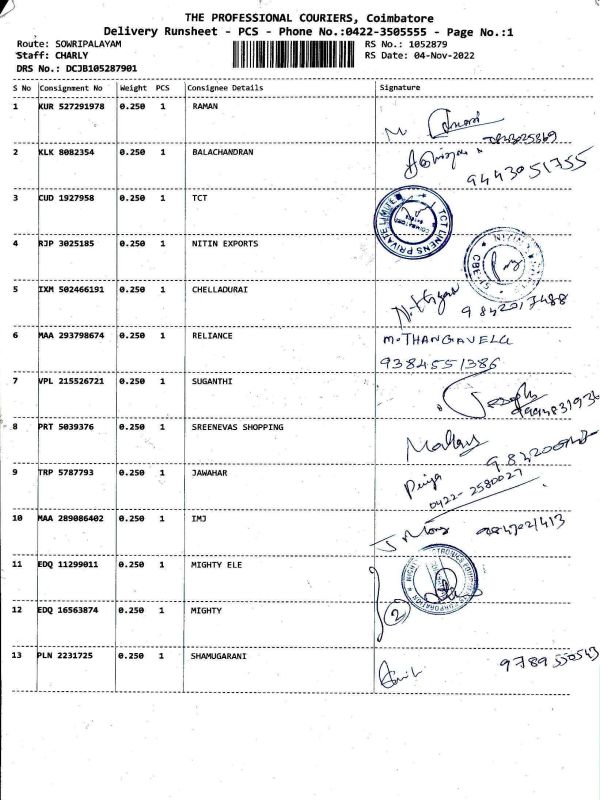 THE PROFESSIONAL COURIERS, Coimbatore
Delivery Runsheet - PCS - Phone No.:0422-3505555 - Page No.:1
Route: SOWRIPALAYAM RS No.: 1052879
Staff: CHARLY RS Date: 04-Nov-2022
DRS No.: DCJB105287901
S No Consignment No Weight PCS Consignee Details Signature
1 KUR 527291978 0.250 1 RAMAN
2 KLK 8082354 0.250 1 BALACHANDRAN
9443051755
3 CUD 1927958 0.250 1 TCT
TCT LINENS PRIVATE LIMITED
4 RJP 3025185 0.250 1 NITIN EXPORTS
NITIN
5 IXM 502466191 0.250 1 CHELLADURAI
9842017488
6 MAA 293798674 0.250 1 RELIANCE M. THANGAVELU
9384551386
7 VPL 215526721 0.250 1 SUGANTHI
Joseph
8 PRT 5039376 0.250 1 SREENEVAS SHOPPING
9 TRP 5787793 0.250 1 JAWAHAR Priya
0422-2580027
10 MAA 289086402 0.250 1 IMJ
11 EDQ 11299011 0.250 1 MIGHTY ELE
12 EDQ 16563874 0.250 1 MIGHTY 2
13 PLN 2231725 0.250 1 SHAMUGARANI 9789550543